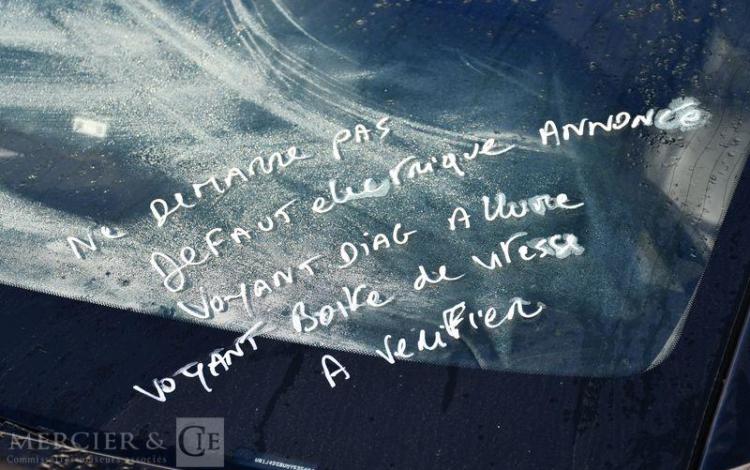 Ne DEMARRE PAS
DEFAUT electronique ANNONCÉ
VOYANT DIAG Allume
VOYANT Boite de vitesse
A Verifier
MERCIER & CIE
Commissaires-priseurs associés